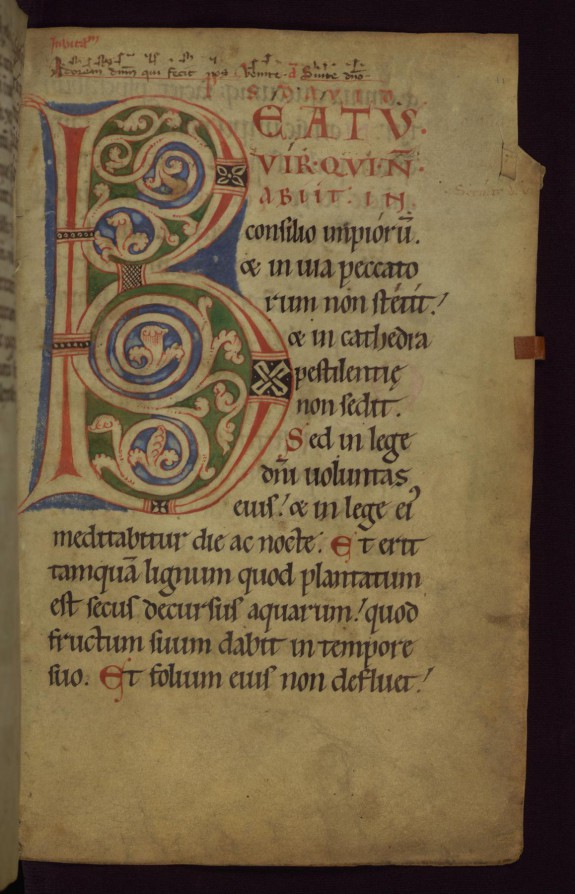 Invitat
Adoram dnm qui fecit nos Venite a Seuite dno
PS DAVID
BEATVS
VIR·QVI Ñ·
ABIIT·IN·
consilio impiorū.
& in uia peccato
rum non stetit!
& in cathedra
pestilentię
non sedit.
Sed in lege
dñi uoluntas
eius! & in lege ei᾽
meditabitur die ac nocte. Et erit
tamquā lignum quod plantatum
est secus decursus aquarum! quod
fructum suum dabit in tempore
suo. Et folium eius non defluet!